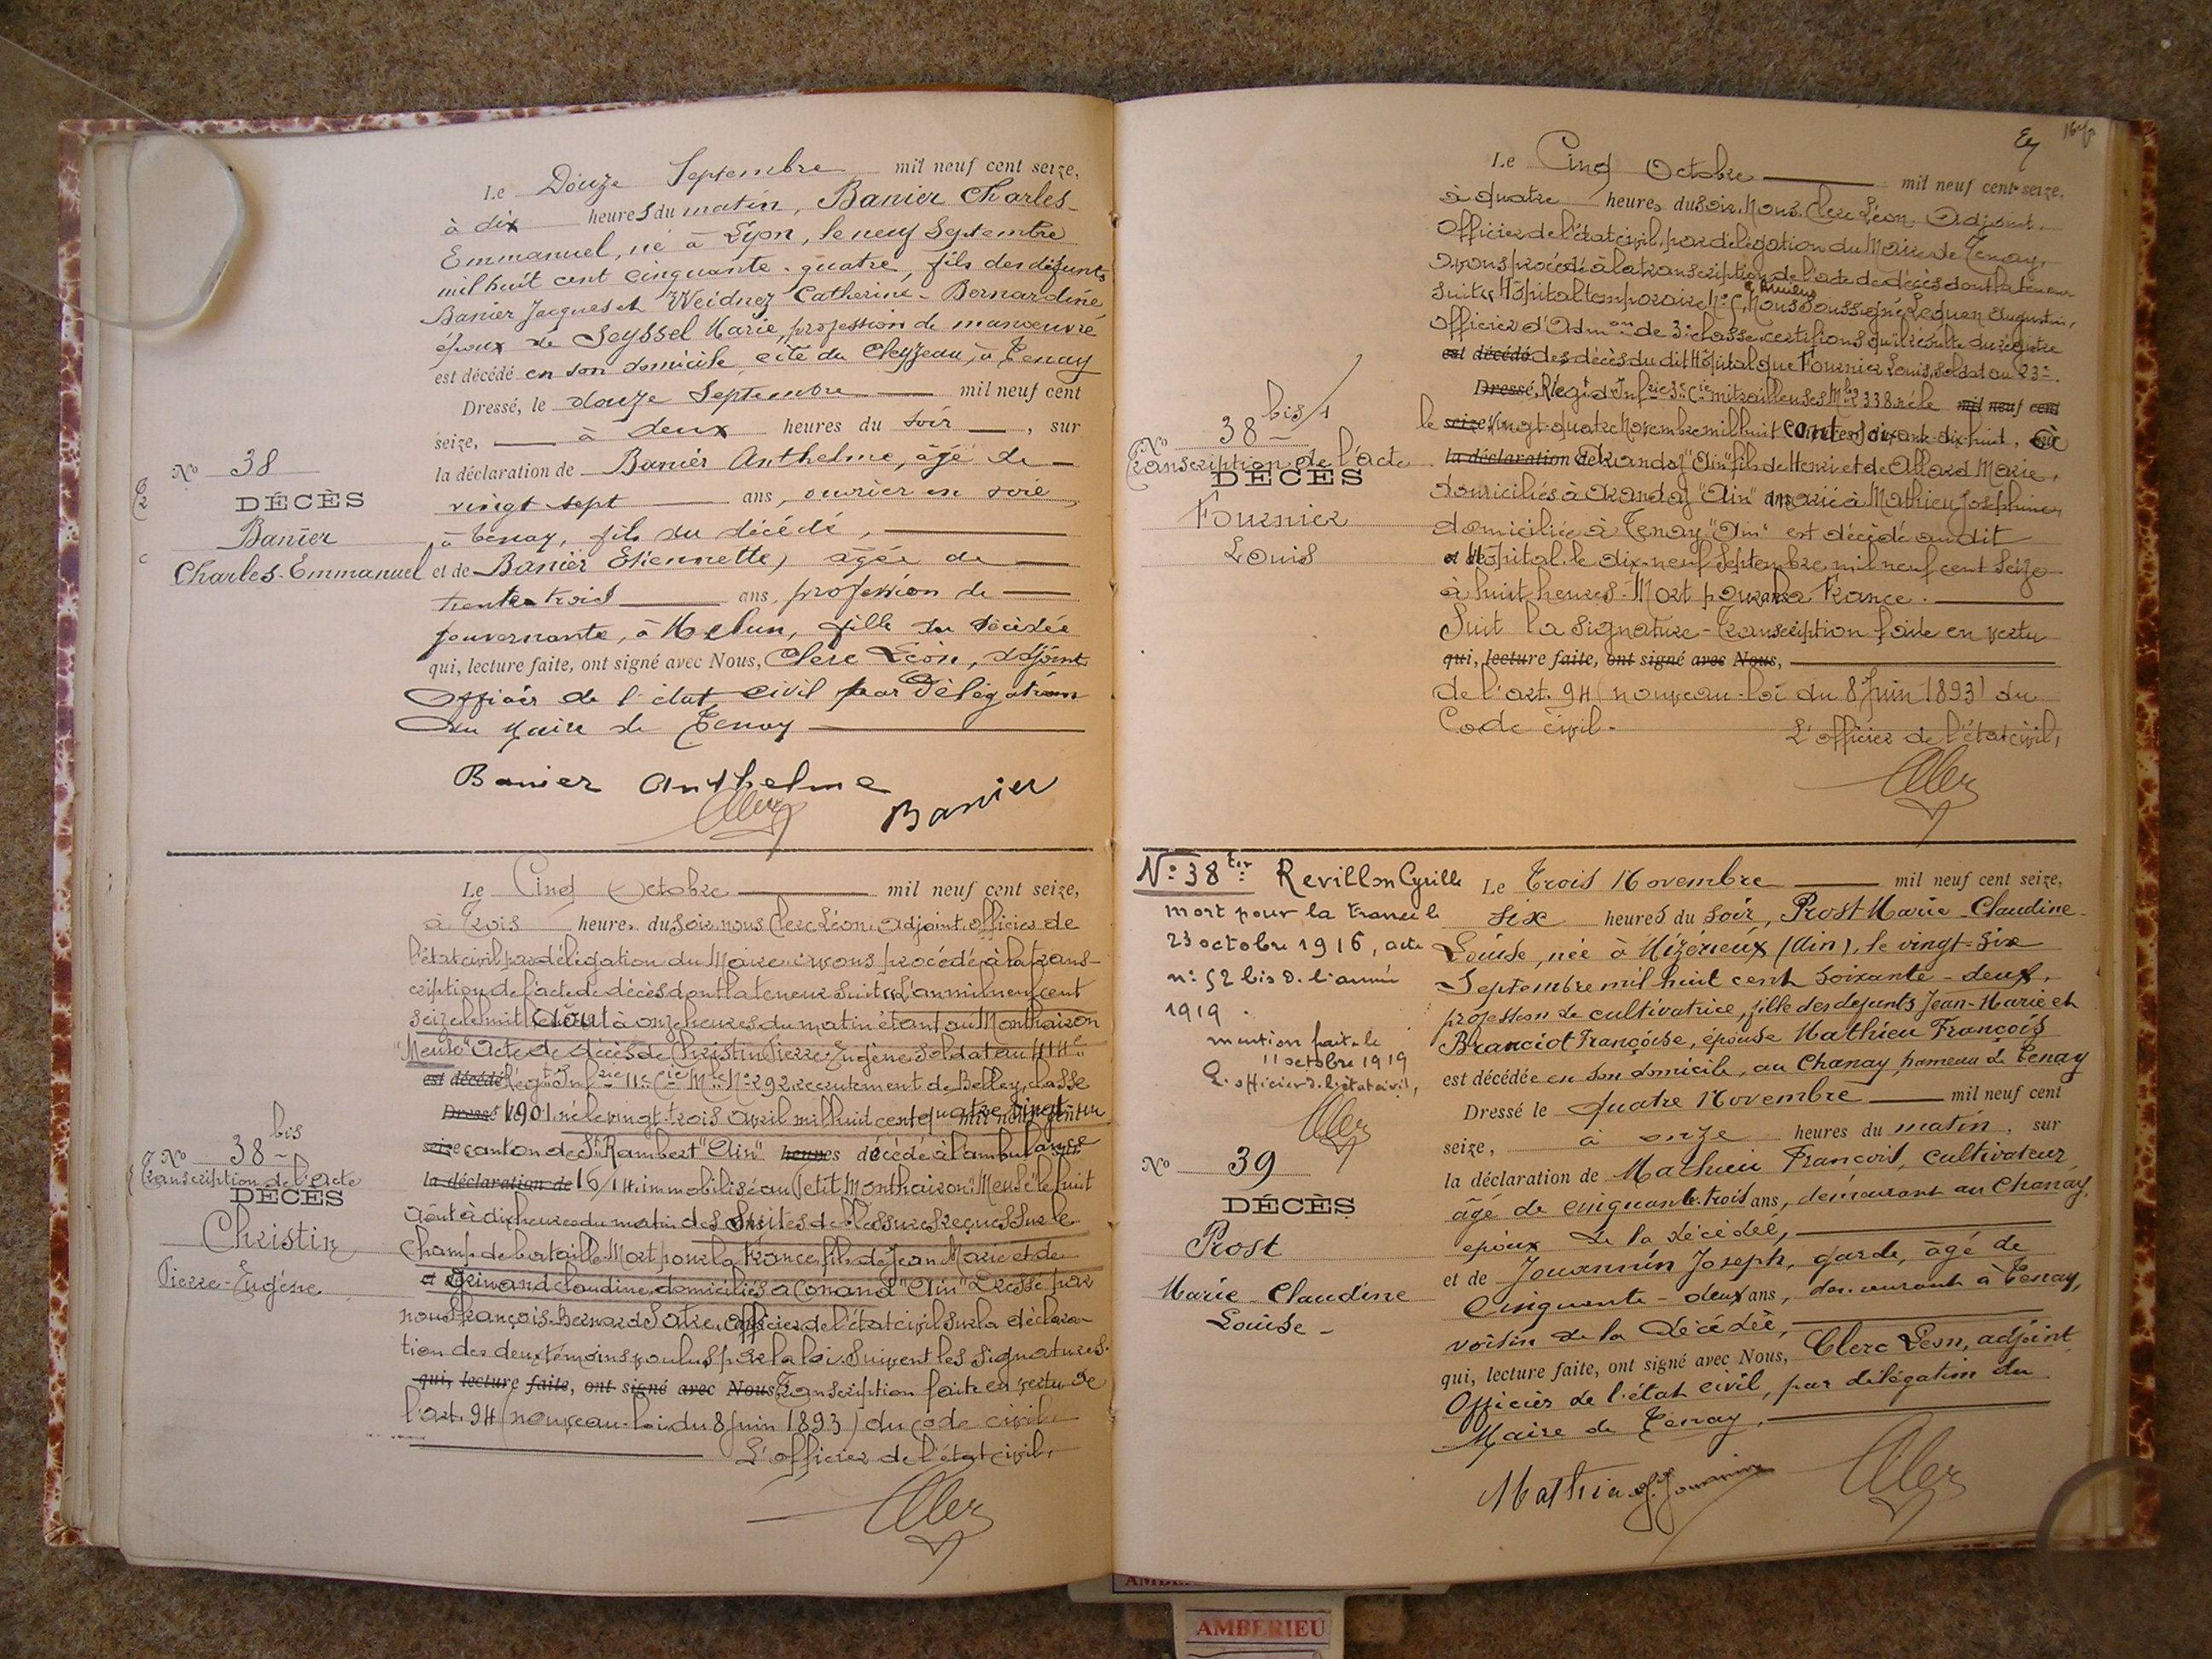 Le Douze Septembre mil neuf cent seize,
à dix heures du matin, Banier Charles-
Emmanuel, né à Lyon, le neuf Septembre
mil huit cent cinquante-quatre, fils des défunts
Banier Jacques et Weidnez Catherine-Bernardine
époux de Seyssel Marie, profession de manoeuvre
est décédé en son domicile, cité du Cleyzeau, à Tenay
Dressé, le douze Septembre mil neuf cent
seize, à deux heures du soir, sur
la déclaration de Banier Anthelme, âgé de
vingt sept ans, ouvrier en soie
à Tenay, fils du décédé,
et de Banier Etiennette, âgée de
trente trois ans, profession de
gouvernante, à Melun, fille du décédée
qui, lecture faite, ont signé avec Nous, Clerc Léon, adjoint
Officier de l'état civil par délégation
du Maire de Tenay
Banier Anthelme
Banier
Clerc
No 38
DÉCÈS
Banier
Charles-Emmanuel
Le Cinq Octobre mil neuf cent seize,
à trois heures du soir, nous Clerc Léon, adjoint officier de
l'état civil par délégation du Maire avons procédé à la trans-
cription de l'acte de décès dont la teneur suit "L'an mil neuf cent
seize le huit Août à onze heures du matin étant au Monthairon
"Meuse" Acte de décès de Christin Pierre-Eugène soldat au 414e
est décédé Régt Infrie 11e Cie Mle No 292 recrutement de Belley, classe
Dressé le 1901 né le vingt-trois avril mil huit cent quatre-vingt un
seize canton de St Rambert "Ain" heures décédé à l'ambulance
la déclaration de 16/14 immobilisée au Petit Monthairon "Meuse" le huit
Août à dix heures du matin des suites de blessures reçues sur le
champ de bataille. Mort pour la France, fils de Jean Marie et de
et de Grinand Claudine, domiciliés à Conand "Ain" Dressé par
nous François-Bernard Satre, officier de l'état civil sur la déclara-
tion des deux témoins voulus par la loi. Suivent les signatures.
qui, lecture faite, ont signé avec Nous Transcription faite en vertu de
l'art. 94 (nouveau-loi du 8 Juin 1893) du code civil.
L'officier de l'état civil,
Clerc
No 38 bis
Transcription de l'acte
DÉCÈS
Christin
Pierre-Eugène
Le Cinq Octobre mil neuf cent seize,
à quatre heures du soir, Nous Clerc Léon Adjoint,
Officier de l'état civil, par délégation du Maire de Tenay,
avons procédé à la transcription de l'acte de décès dont la teneur
suit "Hôpital temporaire No 6, à Amiens Nous soussigné Lequen Augustin,
Officier d'Admon de 3e classe, certifions qu'il résulte du registre
est décédé des décès du dit Hôpital que Fournier Louis, soldat au 23e
Dressé, Régt d'Infrie 3e Cie mitrailleuses Mle 2338 né le mil neuf cent
le seize, vingt-quatre Novembre mil huit cent soixante-dix-huit, à
la déclaration de Randaz "Ain" fils de Henri et de Allard Marie,
domiciliés à Arandaz "Ain" marié à Mathieu Joséphine
domiciliée à Tenay "Ain" est décédé au dit
et de Hôpital le dix-neuf Septembre mil neuf cent seize
à huit heures. Mort pour la France.
Suit la signature-Transcription faite en vertu
qui, lecture faite, ont signé avec Nous,
de l'art. 94 (nouveau-loi du 8 Juin 1893) du
Code civil.
L'officier de l'état civil,
Clerc
No 38 bis/1
Transcription de l'acte
DÉCÈS
Fournier
Louis
No 38 ter Revillon Cyrille
mort pour la France le
23 octobre 1916, acte
no 52 bis d. l'année
1919.
mention faite le
11 octobre 1919
L'officier d. l'état civil,
Clerc
No 39
DÉCÈS
Prost
Marie Claudine
Louise-
Le Trois Novembre mil neuf cent seize,
six heures du soir, Prost Marie-Claudine-
Louise, née à Mizérieux (Ain), le vingt-six
Septembre mil huit cent soixante-deux,
profession de cultivatrice, fille des défunts Jean-Marie et
Branciot Françoise, épouse Mathieu François
est décédée en son domicile, au Chanay, hameau de Tenay
Dressé le quatre Novembre mil neuf cent
seize, à onze heures du matin, sur
la déclaration de Mathieu François, cultivateur
âgé de cinquante-trois ans, demeurant au Chanay,
époux de la décédée,
et de Jouannin Joseph, garde, âgé de
Cinquante-deux ans, demeurant à Tenay,
voisin de la décédée,
qui, lecture faite, ont signé avec Nous, Clerc Léon, adjoint
Officier de l'état civil, par délégation du
Maire de Tenay,
Mathieu f. Jouannin
Clerc
AMBERIEU